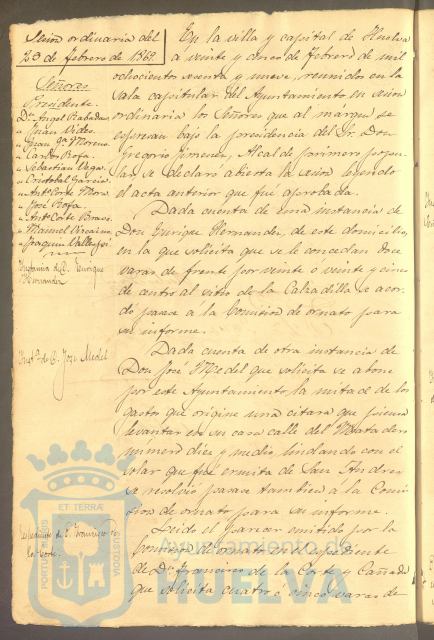 Sesion ordinaria del
25 de febrero de 1869.
Señores
Presidente.
Dn. Angel Rabadan
" Juan Vides.
" Juan Ja. Moreno
" Carlos Rofa.
" Sebastian Vega
" Cristobal Garcia
" Anto. Corte Mora
" José Rofa
" Anto. Corte Bravo
" Manuel Vizcaino
" Joaquin Valle
Instancia de D. Enrique
Hernandez
Insta. de D. José Medel
Espediente de D. Francisco de
la Corte.
En la villa y capital de Huelva
a veinte y cinco de Febrero de mil
ochocientos sesenta y nueve, reunidos en la
sala capitular del Ayuntamiento en sesion
ordinaria los Señores que al márgen se
espresan bajo la presidencia del Sr. Don
Gregorio Jimenez, Alcalde primero popu-
lar, se declaró abierta la sesion leyendo
el acta anterior que fué aprobada.
Dada cuenta de una instancia de
Don Enrique Hernandez, de este domicilio,
en la que solicita que se le concedan doce
varas de frente por veinte o veinte y cinco
de centro al sitio de la Calzadilla se acor-
dó pasase a la Comision de ornato para
su informe.
Dada cuenta de otra instancia de
Don José Medel que solicita se abone
por este Ayuntamiento la mitad de los
gastos que origine una citara que piensa
levantar en su casa calle del Matadero
número diez y medio, lindando con el
solar que fué ermita de San Andres
se resolvió pasase tambien á la Comi-
sion de ornato para su informe.
Leido el parecer emitido por la
Comision de ornato en el espediente
de Dn. Francisco de la Corte y Cañada
que solicita cuatro ó cinco varas de
ET TERRÆ
PORTUS MARIS
CUSTODIA
Ayuntamiento de
HUELVA